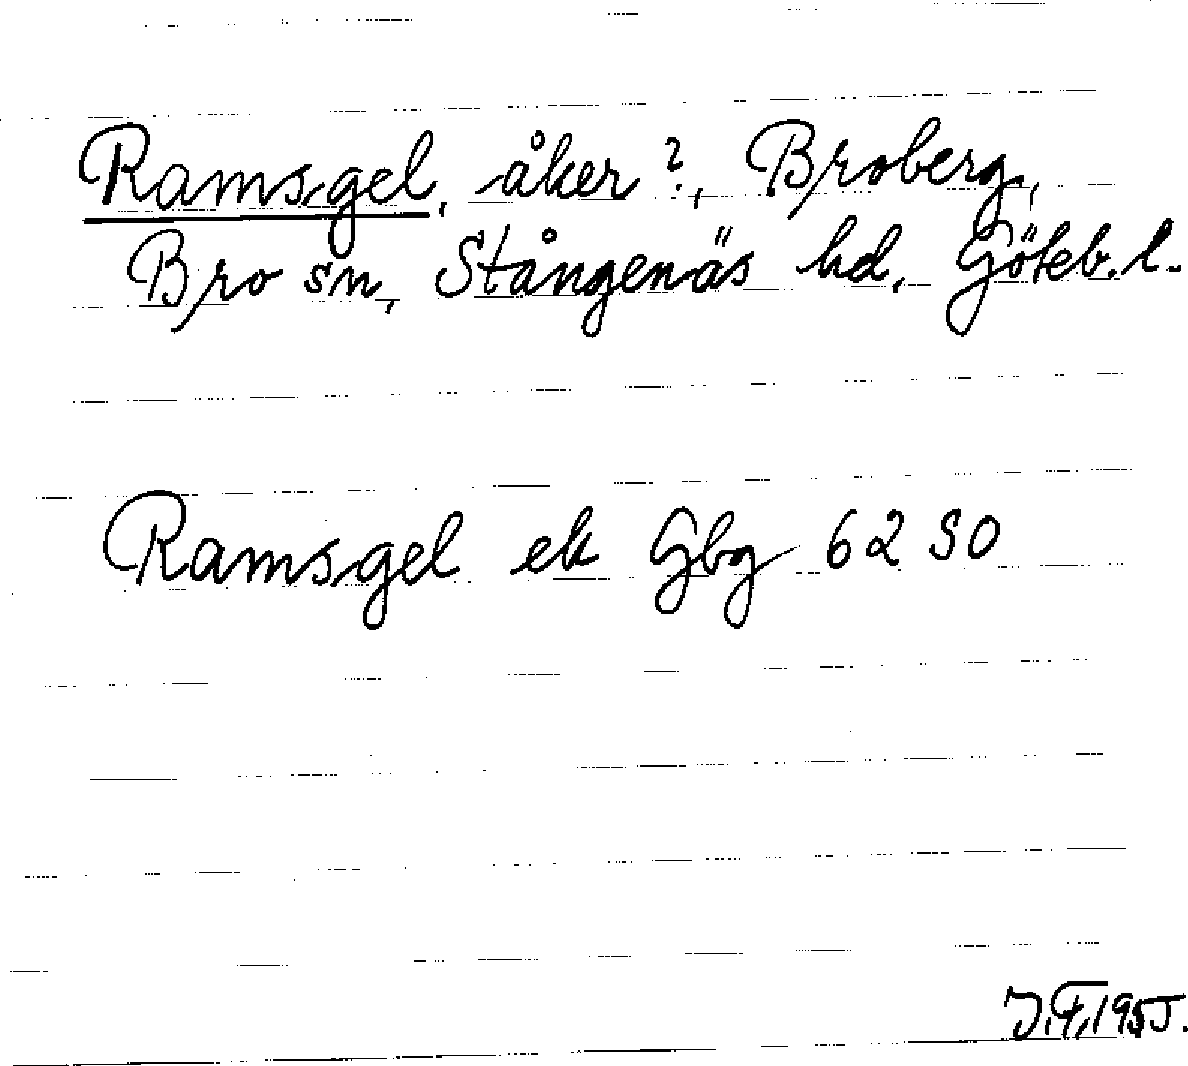 Ramsgel, åker ?, Broberg,
Bro sn, Stångenäs hd, Göteb. l.
Ramsgel ek Gbg 62 SO
J.F. 1955.